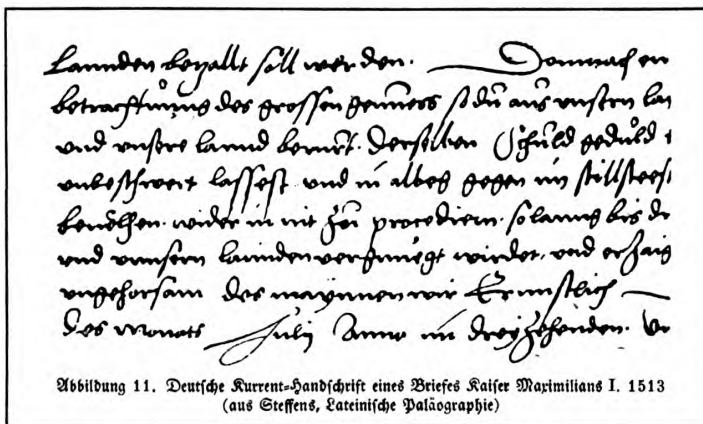 Lannden bezallt soll werden. Demnach en
betrachtnŭng des grossen genniess so dŭ aŭs vnsern lan
vnd vnsere lannd berŭrt. derselben Schŭld gedŭld
vnbeschwert lassest vnd in albeg gegen im stillsteest
beuelhen. wider in nit zŭ procediern. solanng bis
vnd vnnsern lannden vergnŭegt wirdet, vnd erzaig
vngehorsam des maynnen wir Ernnstlich
des monats Julij Anno im dreyzehenden.
Abbildung 11. Deutsche Kurrent-Handschrift eines Briefes Kaiser Maximilians I. 1513
(aus Steffens, Lateinische Paläographie)